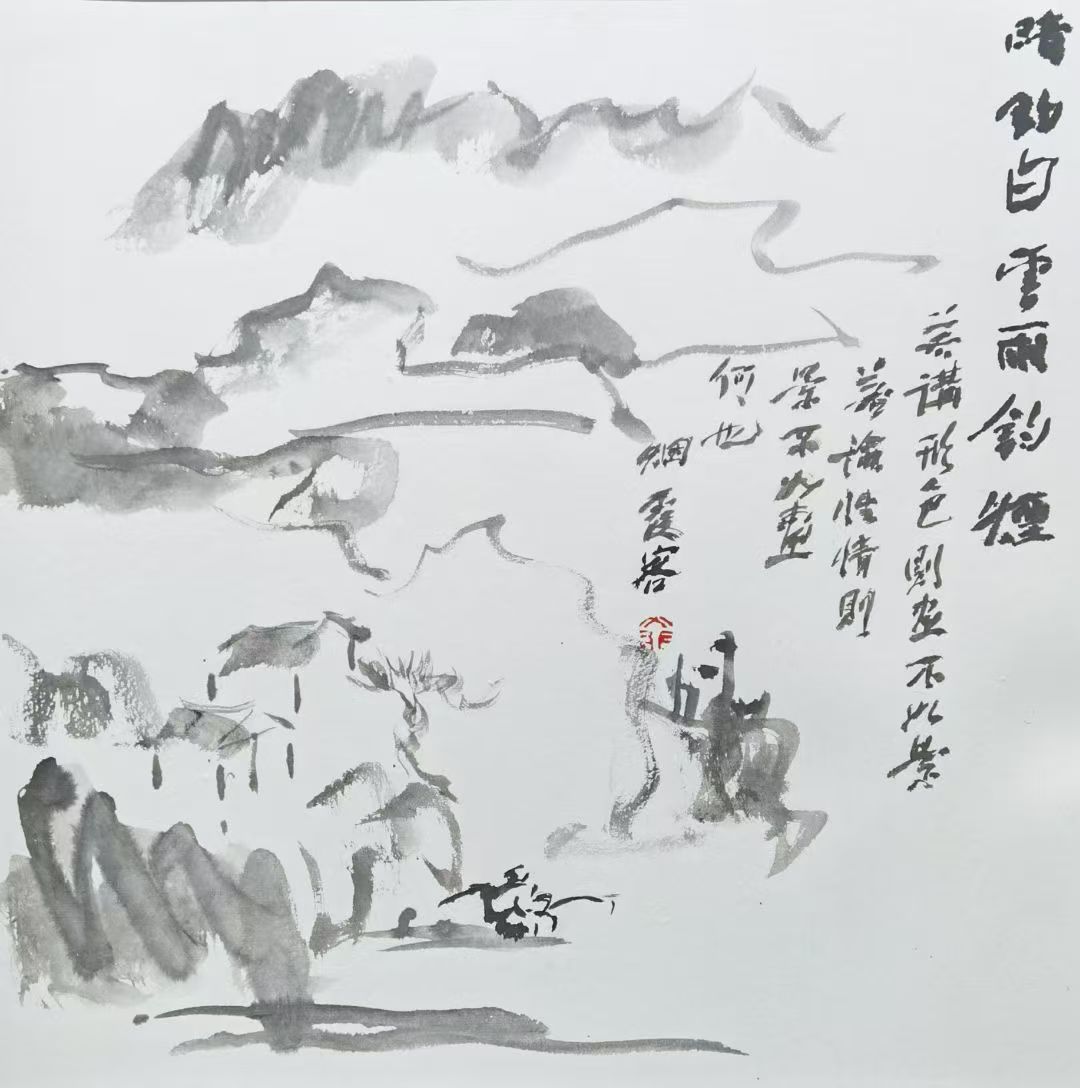 晴白雲雨釣煙
若講形色則畫不如景
若論性情則
景不如畫
何也
烟霞客